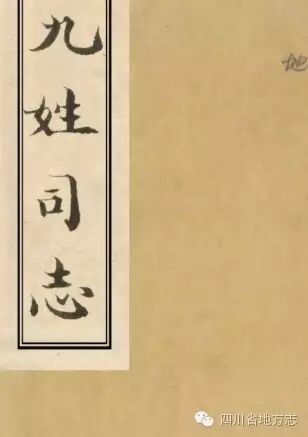 九姓司志
地
四川省地方志